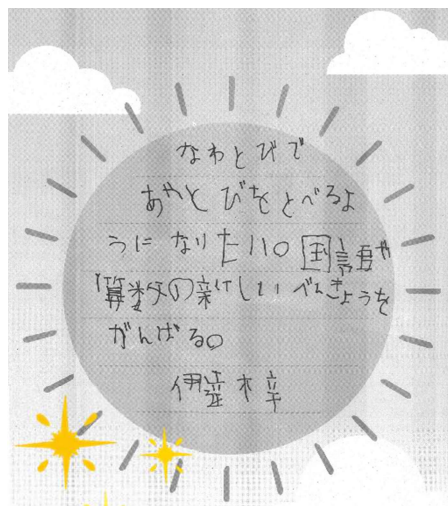 なわとびで
あやとびをとべるよ
うになりたい。国語や
算数の新しいべんきょうを
がんばる。
梓